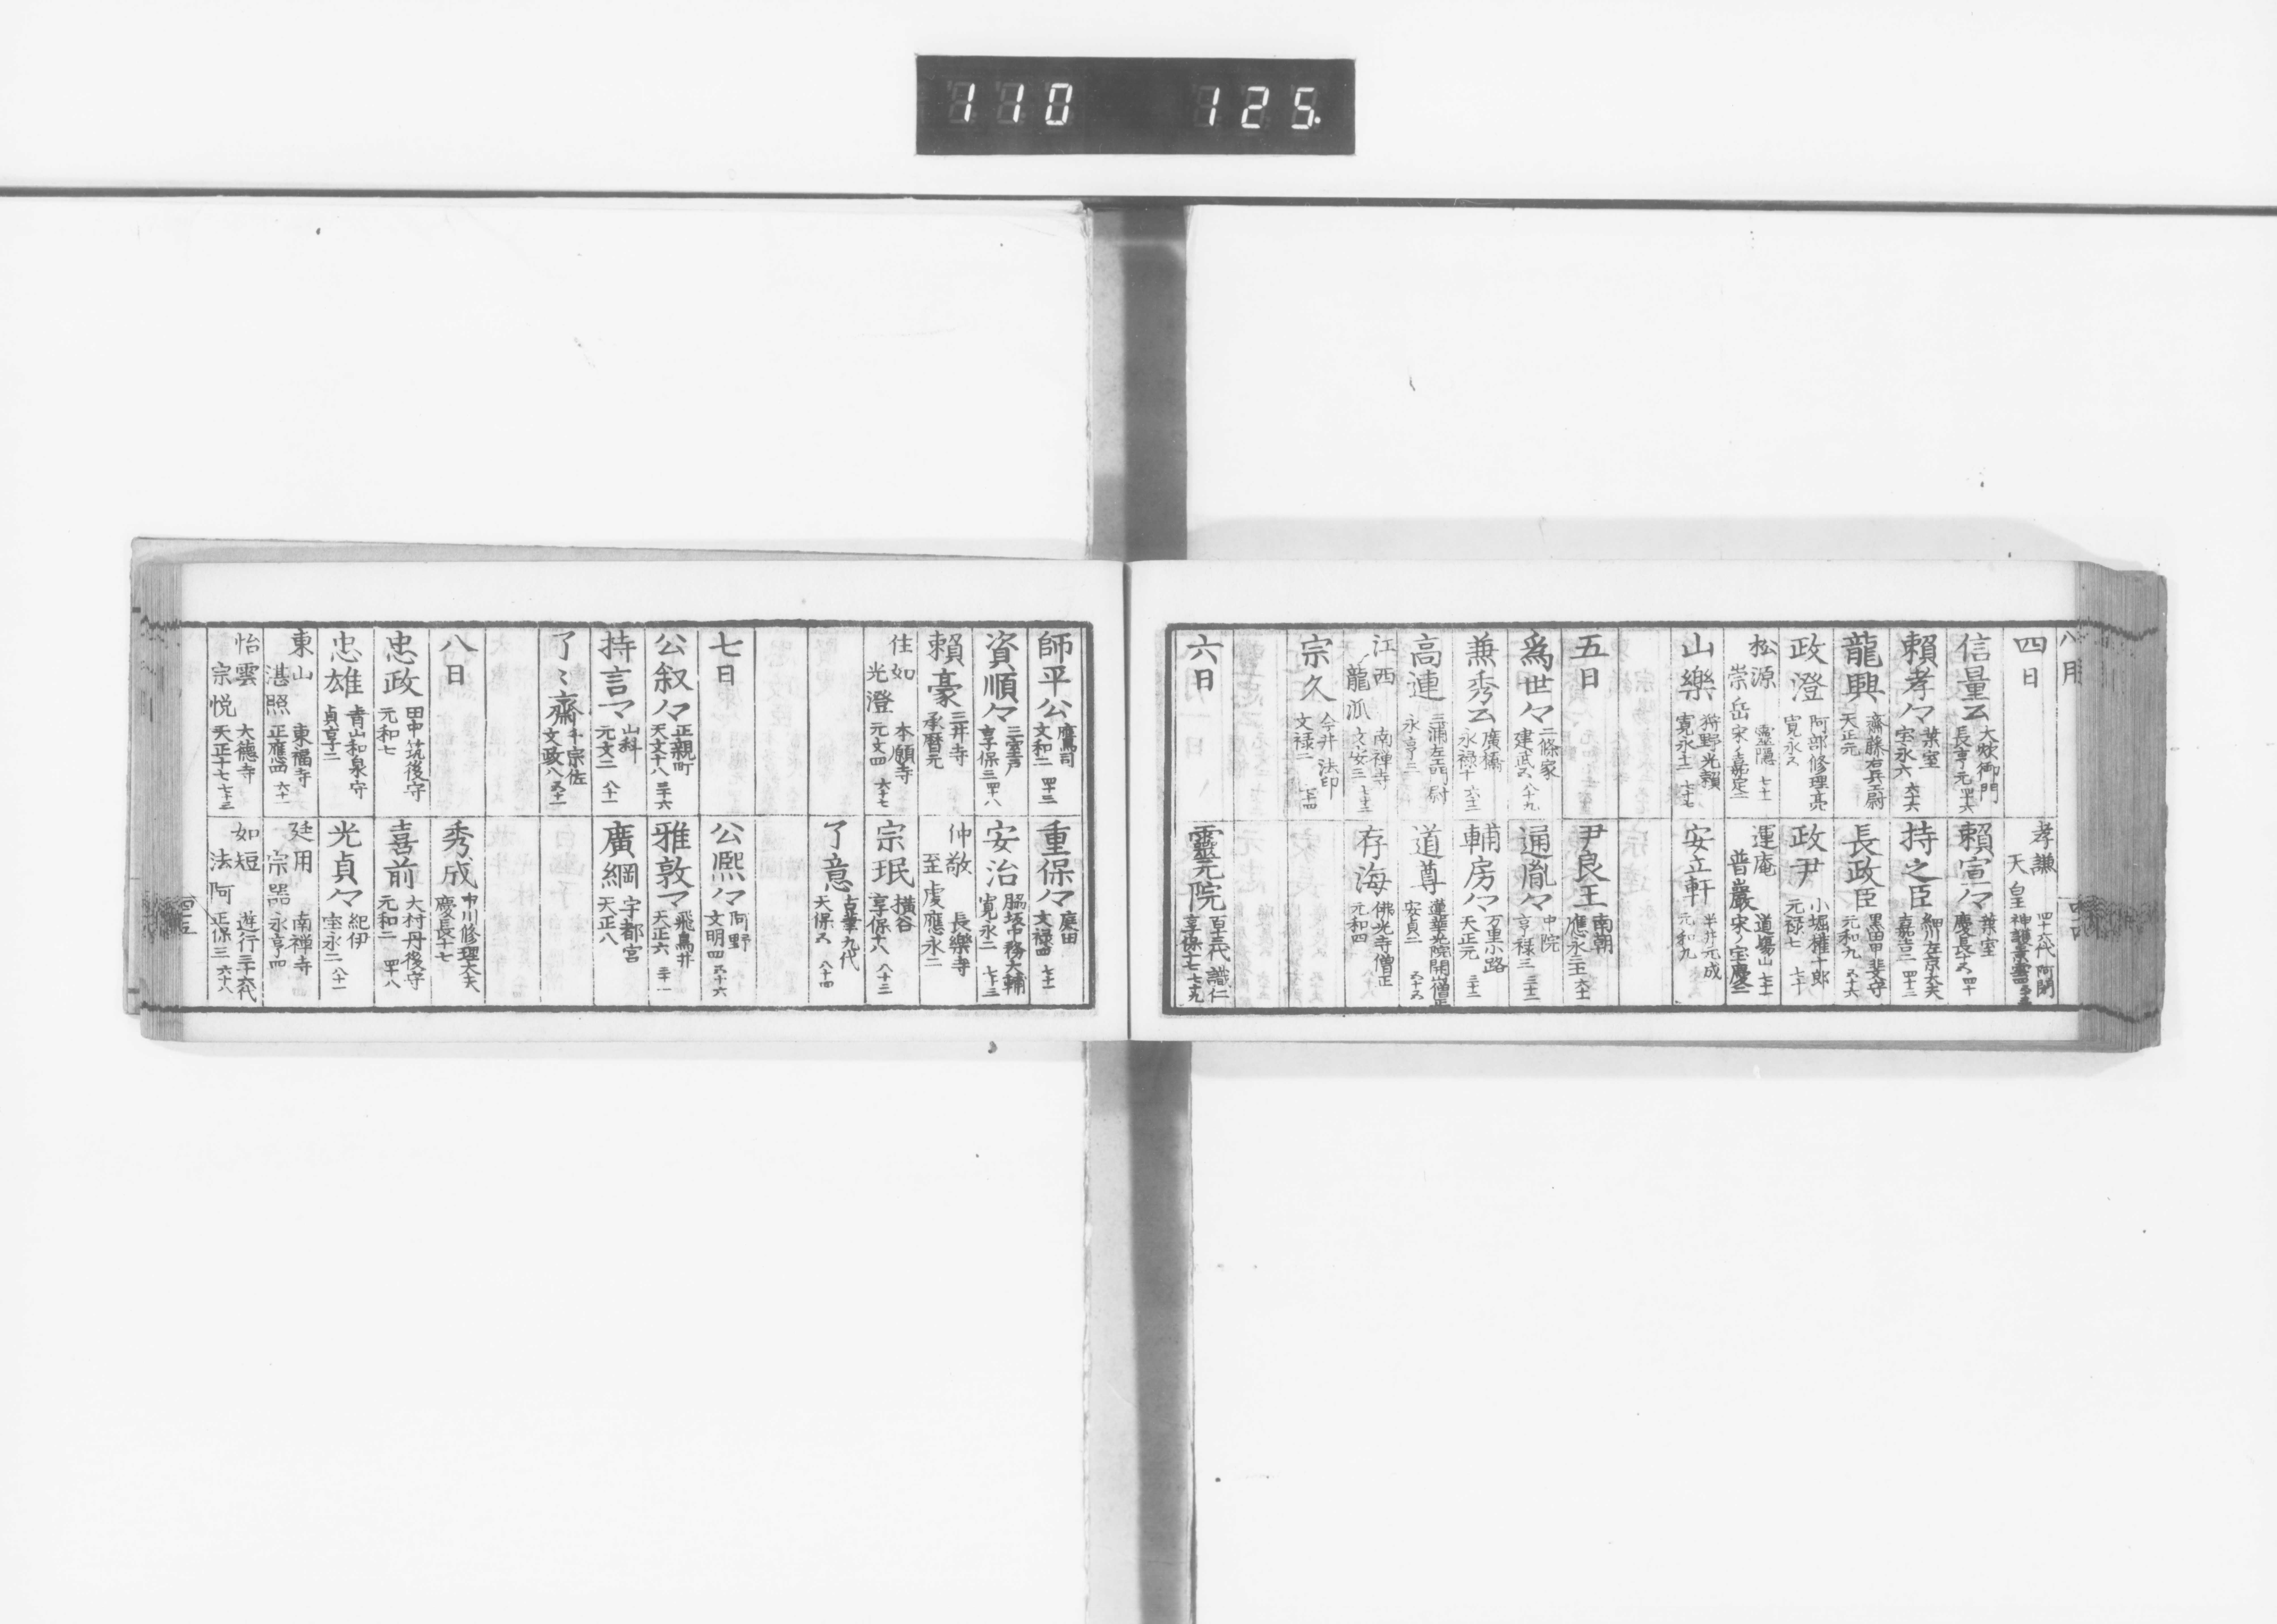 110 125.
八月
四日
孝謙天皇 四十六代 阿閇 神護景雲四
信量公 大炊御門 長享元 四十六
頼宣々 葉室 慶長十五 四十
頼孝々 葉室 宝永六 六十六
持之臣 細川左京大夫 嘉吉二 四十三
龍興 齋藤右兵衛尉 天正元
長政臣 黒田甲斐守 元和九 五十六
政澄 阿部修理亮 寛永五
政尹 小堀権十郎 元禄七 七十
松源 崇岳 靈隠 宋ノ嘉定二 七十一
運庵 普巖 道場山 宋ノ宝慶二 七十一
山樂 狩野光頼 寛永十二 七十七
安立軒 半井元成 元和九
五日
尹良王 南朝 應永三十一 六十一
為世々 二條家 建武五 八十九
通胤々 中院 享禄三 三十三
兼秀公 廣橋 永禄十 六十二
輔房々 万里小路 天正元 三十二
高連 三浦左衛門尉 永享三
道尊 蓮華光院開山僧正 安貞二 五十五
江西 龍派 南禅寺 文安三 七十二
存海 佛光寺僧正 元和四
宗久 今井 法印 文禄二 七十四
六日
靈元院 百十三代 識仁 享保十七 七十九
師平公 鷹司 文和二 四十三
重保々 庭田 文禄四 七十一
資順々 三室戸 享保三 四十八
安治 脇坂中務大輔 寛永二 七十三
頼豪 三井寺 承暦元
仲敬 至虔 長樂寺 應永二
住如 光澄 本願寺 元文四 六十七
宗珉 横谷 享保十八 八十二
了意 古筆九代 天保五 八十四
七日
公熙々 阿野 文明四 五十六
公叙々 正親町 天文十八 五十六
雅敦々 飛鳥井 天正六 三十一
持言々 山科 元文二 八十一
廣綱 宇都宮 天正八
了々齋 千宗佐 文政八 五十一
八日
秀成 中川修理大夫 慶長十七
忠政 田中筑後守 元和七
喜前 大村丹後守 元和二 四十八
忠雄 青山和泉守 貞享二
光貞々 紀伊 宝永二 八十一
東山 湛照 東福寺 正應四 六十一
廷用 宗器 南禅寺 永享四
怡雲 宗悦 大徳寺 天正十七 七十三
如短 法阿 遊行三十六代 正保三 六十八